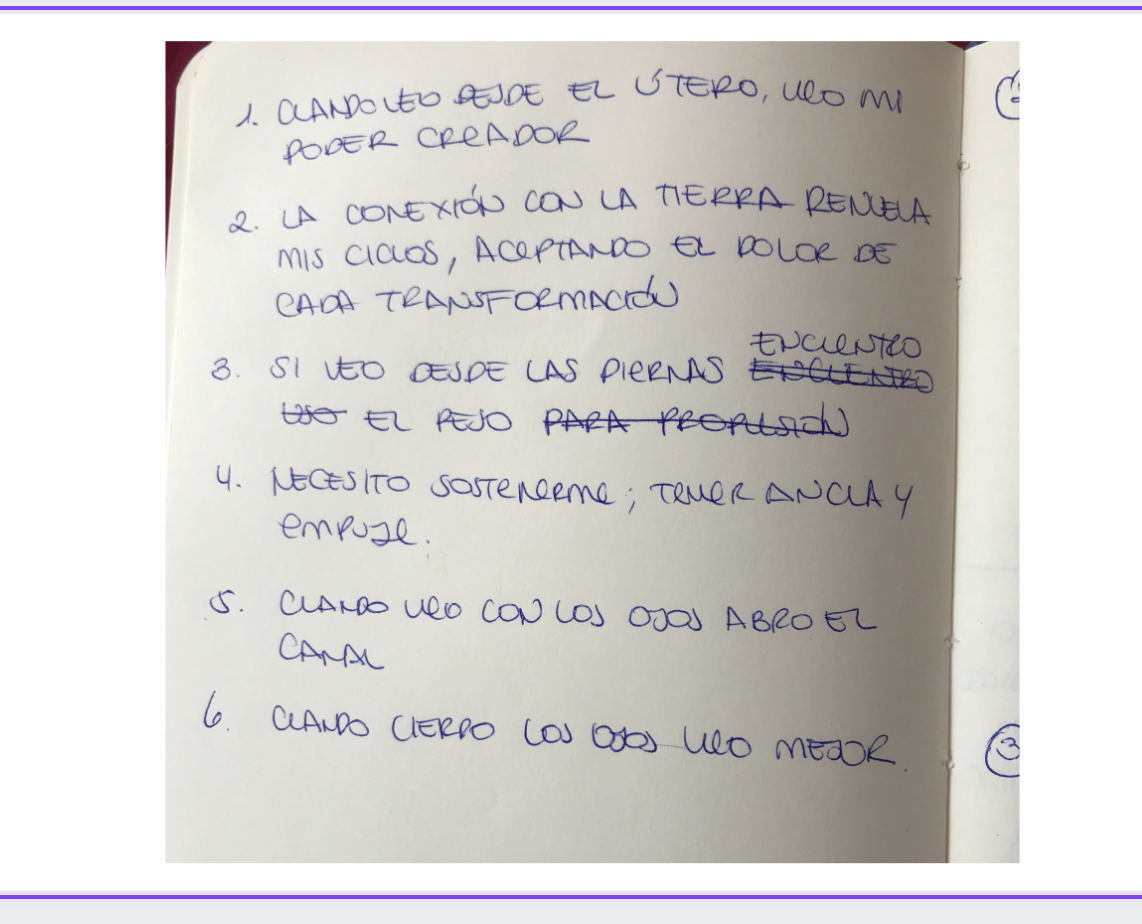 1. CUANDO VEO DESDE EL ÚTERO, VEO MI
PODER CREADOR
2. LA CONEXIÓN CON LA TIERRA RENUEVA
MIS CICLOS, ACEPTANDO EL DOLOR DE
CADA TRANSFORMACIÓN
ENCUENTRO
3. SI VEO DESDE LAS PIERNAS ENCUENTRO
USO EL PESO PARA PROPULSIÓN
4. NECESITO SOSTENERME; TENER ANCLA Y
EMPUJE.
5. CUANDO VEO CON LOS OJOS ABRO EL
CANAL
6. CUANDO CIERRO LOS OJOS VEO MEJOR.
3